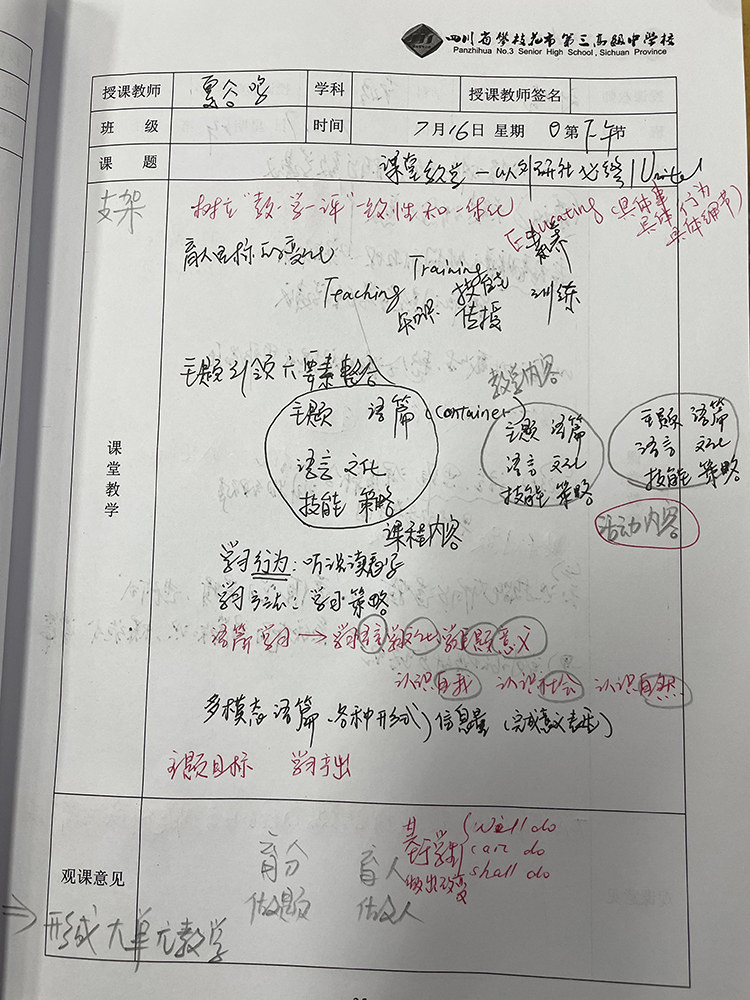 四川省攀枝花市第三高级中学校
Panzhihua No.3 Senior High School, Sichuan Province
授课教师 夏谷鸣 学科 授课教师签名
班 级 时间 7月16日 星期 日 第下午节
课 题 课堂教学—以外研社必修1 Unite1
支架 树立"教-学-评"一致性和一体化
Educating (具体事
具体行为
具体细节)
素养
育人目标的变化
Training
Teaching 技能 训练
知识 传授
主题引领六要素整合
教学内容
主题 语篇 (container)
语言 文化
技能 策略
课程内容
主题 语篇
语言 文化
技能 策略
主题 语篇
语言 文化
技能 策略
活动内容
课堂教学
学习行为:听说读看写
学习方法:学习策略
语篇学习→学习语言学文化学主题意义
认识自我 认识社会 认识自然
多模态语篇(各种形式)信息量(完成意义表达)
主题目标 学习产出
观课意见
育分 育人
做题 做人
基于学生
做出改变
will do
can do
shall do
⇒ 形成大单元教学